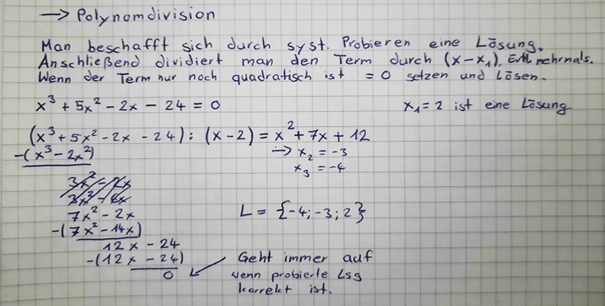 → Polynomdivision
Man beschafft sich durch syst. Probieren eine Lösung.
Anschließend dividiert man den Term durch (x-x₁), Evtl mehrmals.
Wenn der Term nur noch quadratisch ist = 0 setzen und Lösen.
x³ + 5x² - 2x - 24 = 0 x₁ = 2 ist eine Lösung
(x³ + 5x² - 2x - 24) : (x - 2) = x² + 7x + 12
-(x³ - 2x²) → x₂ = -3
x₃ = -4
7x² - 2x
-(7x² - 14x) L = {-4; -3; 2}
12x - 24
-(12x - 24) Geht immer auf
0 wenn probierte Lsg
korrekt ist.